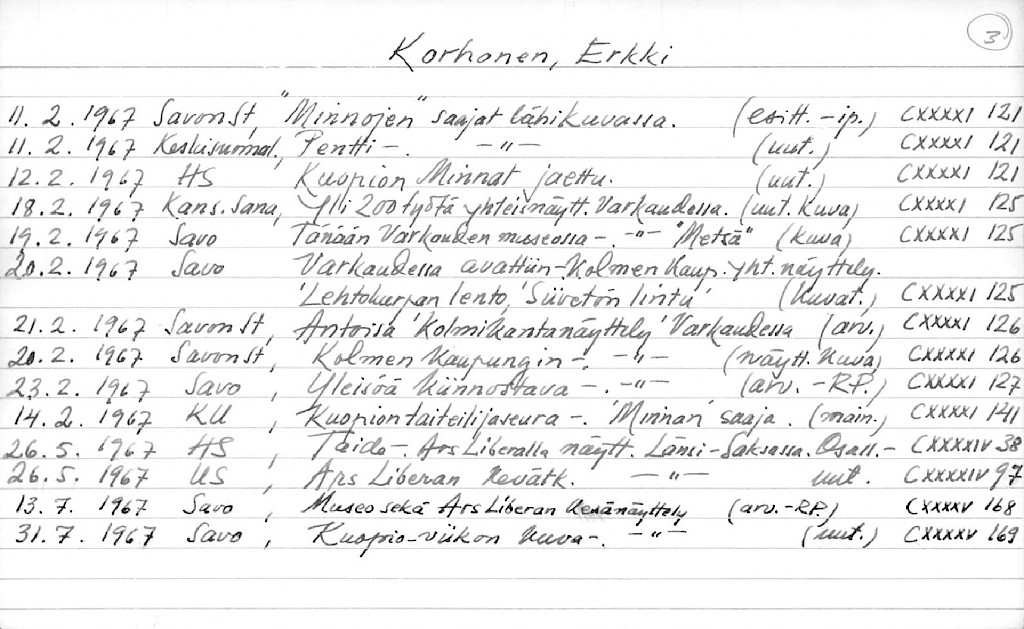 3
Korhonen, Erkki
11. 2. 1967 SavonSt, "Minnojen" saajat lähikuvassa. (esitt. -ip.) CXXXXI 121
11. 2. 1967 Keskisuomal., Pentti -. -"- (uut.) CXXXXI 121
12. 2. 1967 HS Kuopion Minnat jaettu. (uut.) CXXXXI 121
18. 2. 1967 Kans. Sana, Yli 200 työtä yhteisnäytt. Varkaudessa. (uut. Kuva) CXXXXI 125
19. 2. 1967 Savo Tänään Varkauden museossa -. -"- "Metsä" (kuva) CXXXXI 125
20. 2. 1967 Savo Varkaudessa avattiin - Kolmen Kaup. yht. näyttely.
'Lehtokurpan lento,' 'Siivetön lintu' (Kuvat.) CXXXXI 125
21. 2. 1967 SavonSt, Antoisa 'Kolmikantanäyttely' Varkaudessa (arv.) CXXXXI 126
20. 2. 1967 SavonSt, Kolmen Kaupungin -. -"- (näytt. Kuva) CXXXXI 126
23. 2. 1967 Savo , Yleisöä kiinnostava -. -"- (arv. -R.P.) CXXXXI 127
14. 2. 1967 KU , Kuopion taiteilijaseura -. 'Minnan' saaja. (main.) CXXXXI 141
26. 5. 1967 HS , Taide - Ars Liberalla näytt. Länsi-Saksassa. Osall.- CXXXXIV 38
26. 5. 1967 US , Ars Liberan Kevätk. -"- uut. CXXXXIV 97
13. 7. 1967 Savo , Museo sekä Ars Liberan Kesänäyttely (arv. -R.P.) CXXXXV 168
31. 7. 1967 Savo , Kuopio-viikon kuva -. -"- (uut.) CXXXXV 169